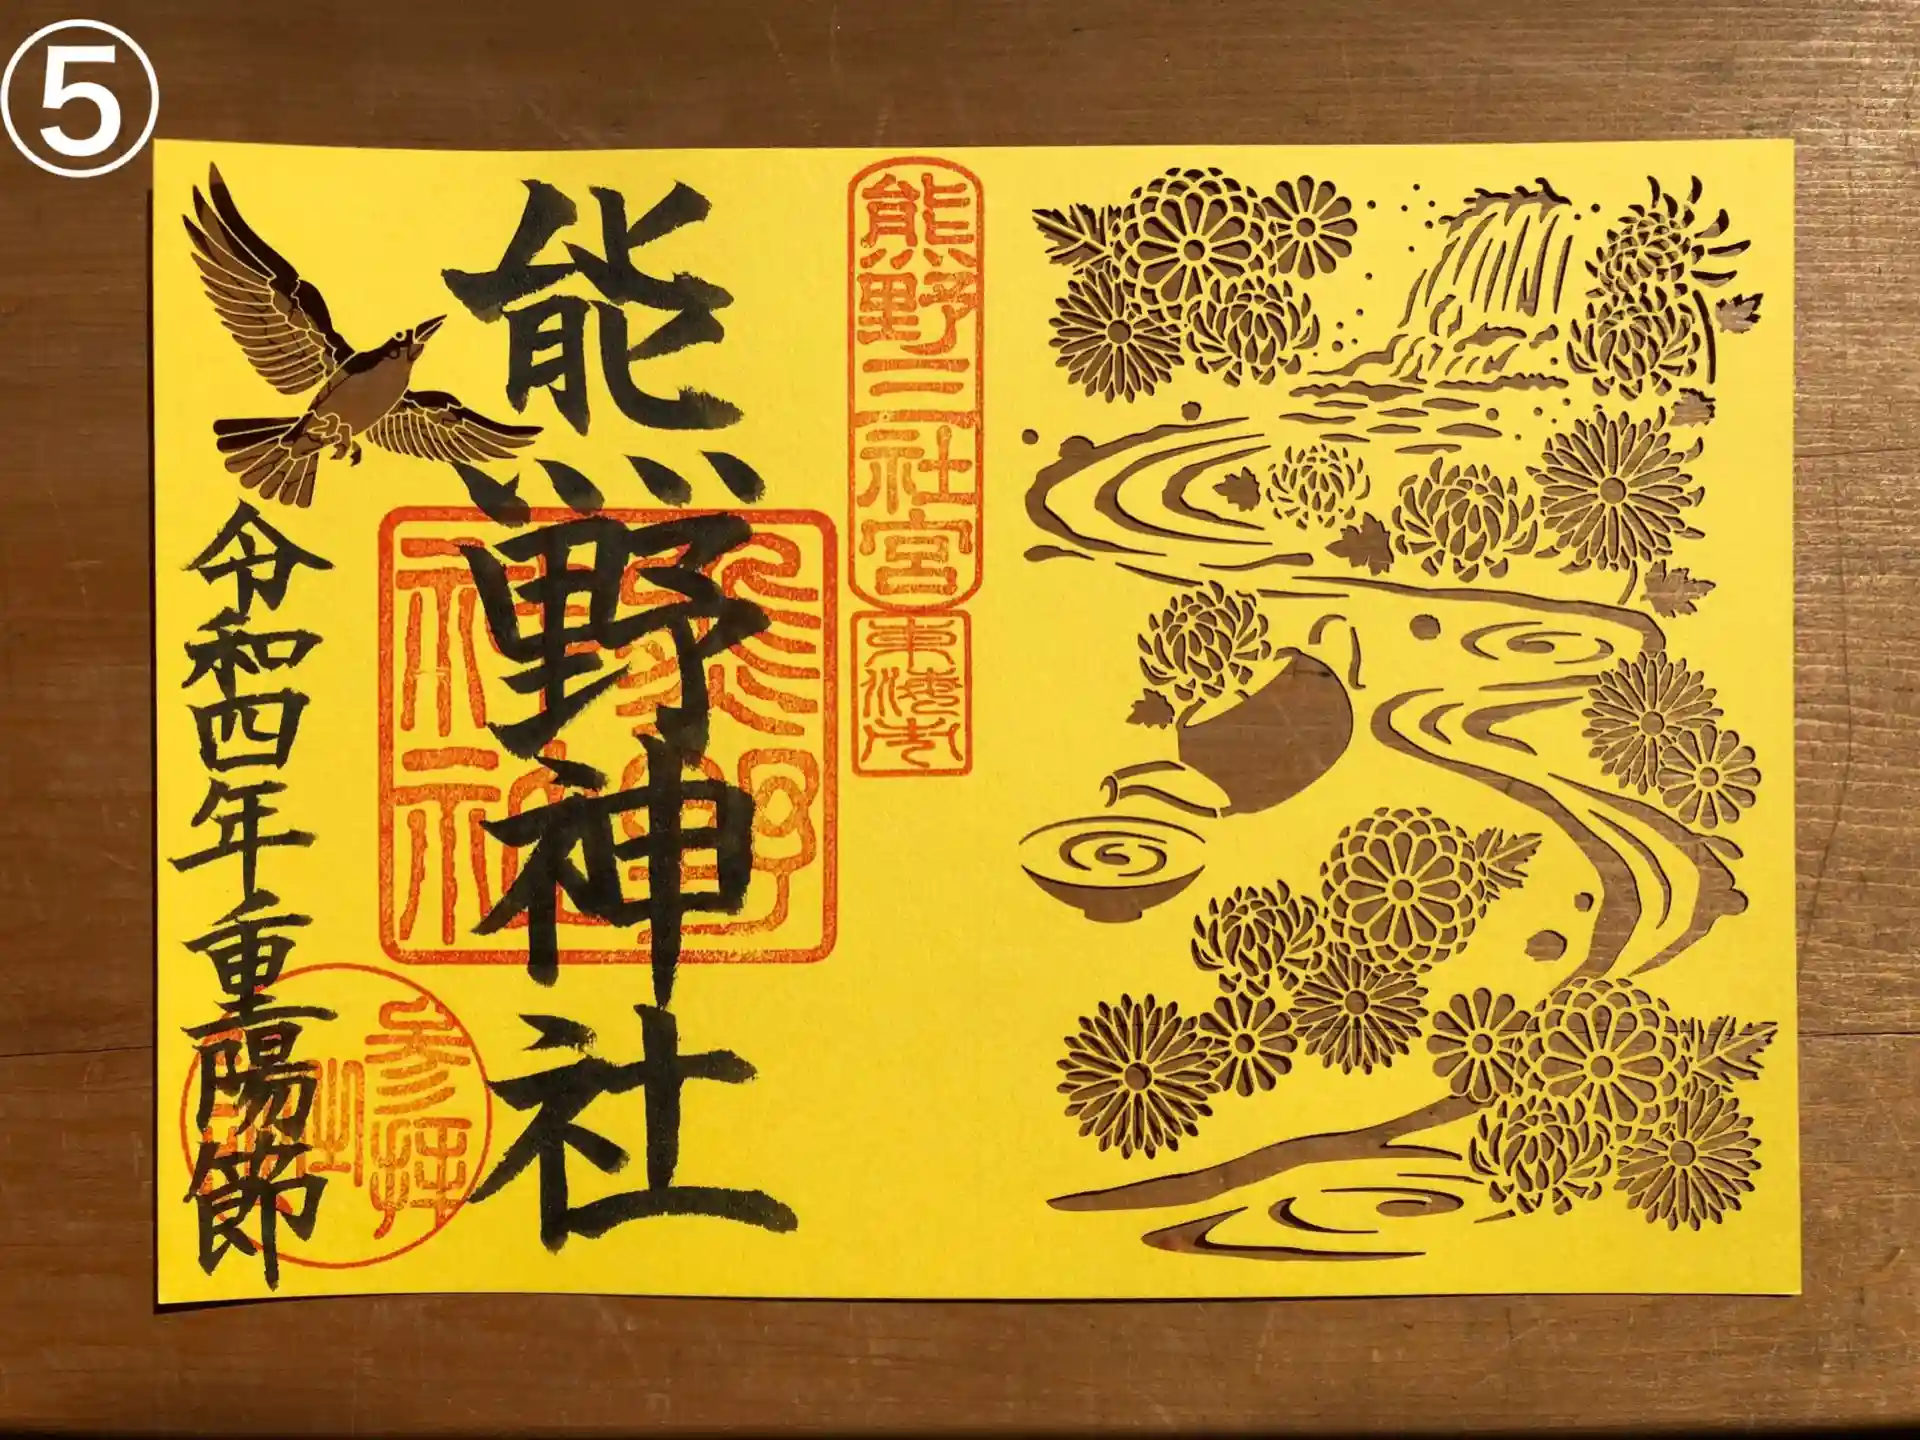 ⑤
熊野三社宮
東海市
熊野神社
熊野
神社
参拝
令和四年重陽節